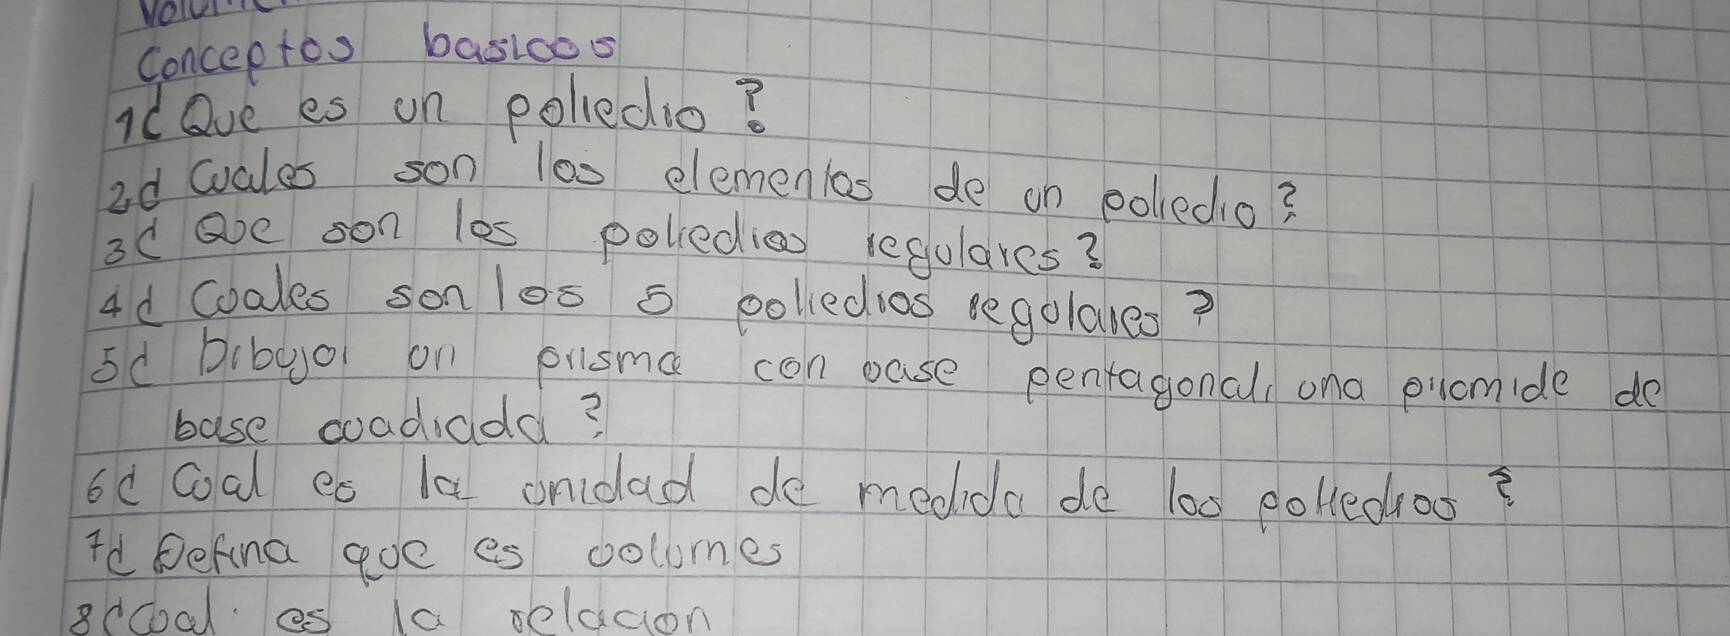 Conceptos basicos
1¿ Que es un poliedro?
2¿ Cuales son los elementos de un poliedro?
3¿ Que son los poliedros regulares?
4¿ Cuales son los 5 poliedros regulares?
5¿ Dibujar un prisma con base pentagonal, una piramide de
base cuadrada?
6¿ Cual es la unidad de medida de los poliedros?
7¿ Defina que es volumes
8¿ Cual es la relacion